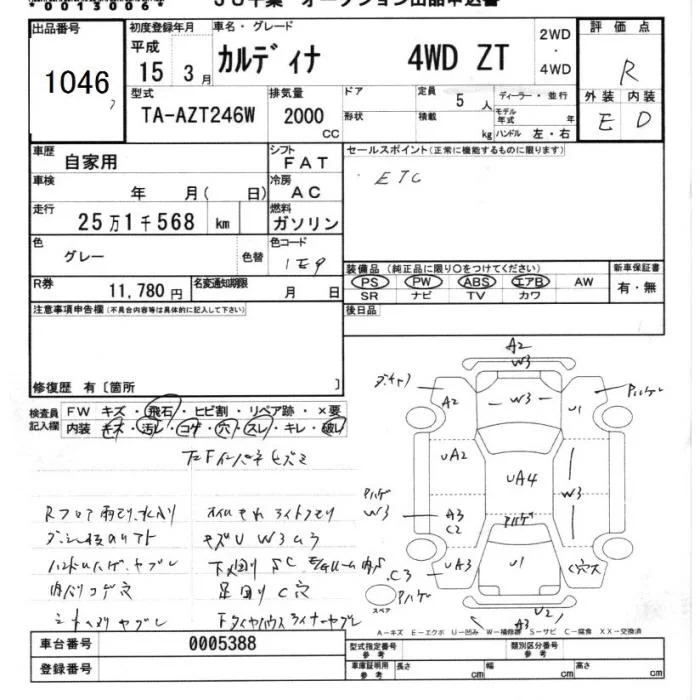 *00130064
JU千葉 オークション出品申込書
出品番号
1046
初度登録年月
平成
15 3月
車名・グレード
カルディナ 4WD ZT
2WD
・
4WD
評価点
R
外装 内装
E D
型式
TA-AZT246W
排気量
2000
CC
ドア
形状
定員
5 人
積載
kg
ディーラー・並行
モデル年式 年
ハンドル 左・右
車歴
自家用
シフト
FAT
セールスポイント(正常に機能するものに限ります)
ETC
車検
年 月( 日)
冷房
AC
走行
25万1千568 km
燃料
ガソリン
色
グレー
色替
色コード
1E9
装備品(純正品に限り○をつけてください)
PS PW ABS エアB AW
SR ナビ TV カワ
新車保証書
有・無
R券
11,780円
名変通知期限
月 日
後日品
注意事項申告欄(不具合内容等は具体的に記入して下さい)
修復歴 有〔箇所 〕
検査員記入欄
FW キズ・飛石・ヒビ割・リペア跡・×要
内装 キズ・汚レ・コゲ・穴・スレ・キレ・破レ
A2
W3
W3
A2
U1
アルハゲ
UA2
UA4
W3
アハゲ
W3
A3
C2
アハゲ
UA3
U1
C穴ス
C3
アハゲ
スペア
U2
A3
Rフロア雨モリ、水入り
オイルもれ ライトクモリ
キズU W3ムラ
ハンドルハゲ ヤブレ
内ハリコゲ穴
足回りC穴
シートヘリ ヤブレ
下タイヤハウスライナーヤブレ
A-キズ E-エクボ U-凹み W-補修跡 S-サビ C-腐食 XX-交換済
車台番号
0005388
登録番号
型式指定番号
参考
類別区分番号
参考
車庫証明用
参考
長さ cm
幅 cm
高さ cm